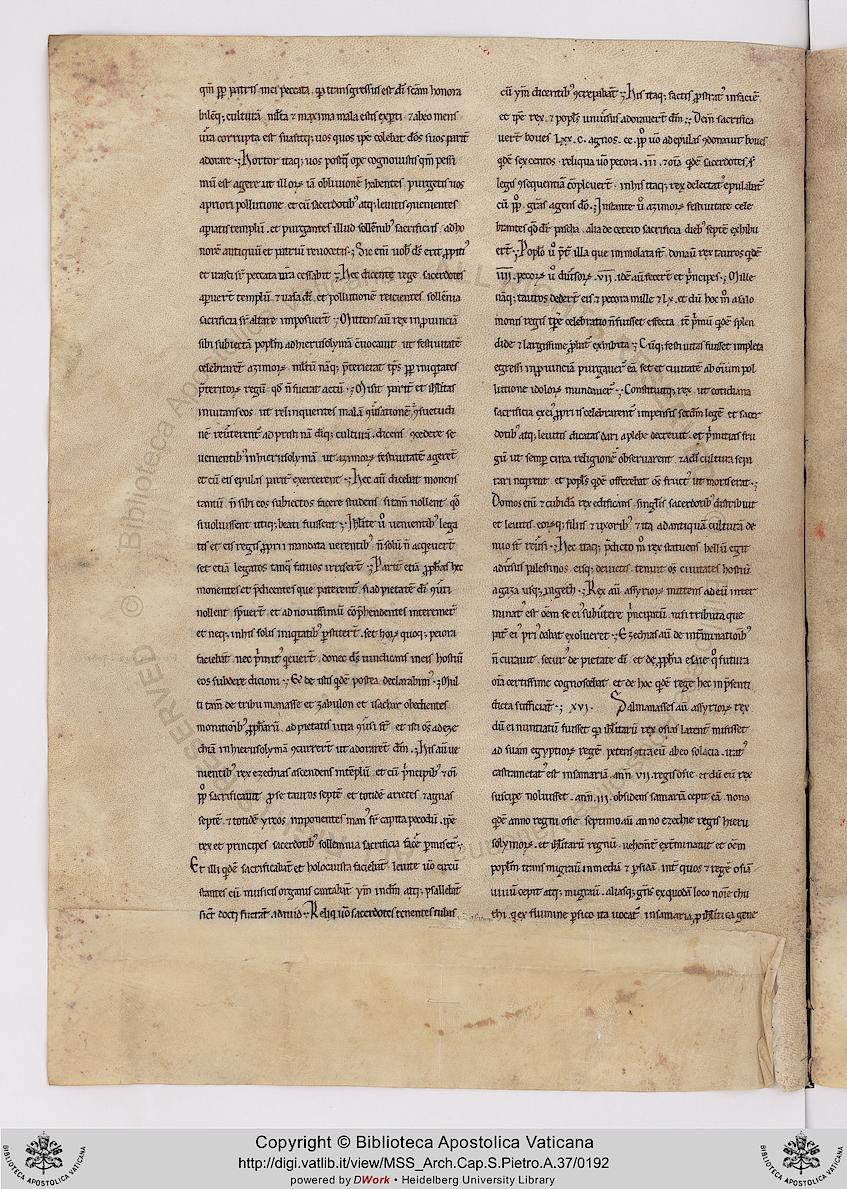 qm̄ ꝓp patris mei peccata. q̇a transgressus est dī scām honora
bilēq; culturā. multa & maxima mala estis exꝑti. & abeo mens
ur̄a corrupta est suasitq; uos quos ip̄e colebat dōs suos parit̄
adorare·; Hortor itaq; uos postq̄
mū est agere ut illoꝝ iā obliuionē habentes. purgetis uos
apriori pollutione. et cū sacerdotib; atq; leuitis ꝯuenientes
apiatis templū. et purgantes illud sollēnib; sacrificiis. adho
norē antiquū et patriū reuocetis·; Sic eni uob̄ ds̄ erit ꝓpiti᷒
et uasci sr̄ peccata ur̄a cessabit·; Hec dicente rege. sacerdotes
aꝑuer̄t templū. & uasa dī. et pollutionē reicientes sollēnia
sacrificia sr̄ altare imposuer̄t·; Mittens aū rex inꝓuinciā
sibi subiectā poplm̄ adhierusolymā cōuocauit. ut festiuitatē
celebrarent azimoꝝ. multū nāq; p̄terierat tp̄s ꝓp iniq̇tates
p̄teritoꝝ regū. qd̄ n̄ fuerat actū·; Misit parit̄ et isrl̄itas
inuitans eos. ut relinquentes malā ꝯuersationē
nē reuerterent̄ ad pristinā dīq; culturā. dicens ꝯcedere se
uenientib; inhierusolymā. ut azimoꝝ festiuitatē ageret̄
et cū eis epulas parit̄ exercerent·; Hec aū dicebat monens
tantū. n̄ sibi eos subiectos facere studens. si tam̄ nollent. qd̄
si uoluissent utiq; beati fuissent·; Isrl̄ite u̇ uenientib; lega
tis et eis regis ꝓpri mandata uerentib; n̄ solū n̄ acqeuer̄t
set etiā legatos tanq̄ fatuos irriser̄t·; Parit̄ etiā ꝓph̄as hec
monentes et p̄dicentes que paterent̄. si ad pietatē dī ꝯuti
nollent. spuer̄t. et ad nouissimū cōp̄hendentes interemer̄t
et neq; inhis solis iniq̇tatib; ꝑstiter̄t. set hoꝝ quoq; peiora
faciebāt. nec p̄mit᷒ q̇euer̄t. donec ds̄ uindicans in eis hostiū
eos subdere dicioni·; & de istis q̇dē postea declarabim᷒·; Mul
ti tam̄ de tribu manasse et zabulon et isachar obedientes
monitionib; ꝓph̄arū. ad pietatis iura ꝯuersi sr̄. et isti
chiā inhierusolymā ꝯcurrer̄t ut adorarēt dm̄·; His aū ue
nientib; rex ezechias ascendens intēplū. et cū p̄ncipib; & ōi
pp̄lo sacrificauit. ꝓ se tauros septē. et totidē arietes & agnas
septē. & totidē yrcos imponentes man᷒ sr̄ capita pecodū. ip̄e
rex et principes sacerdotib; sollemnia sacrificia facē ꝑmiser̄t·;
Et illi q̇dē sacrificabāt et holocausta faciebāt. leuite uō circū
stantes cū musicis organis cantabāt ymnū indm̄. atq; psallebāt
sic̄t docti fuerāt adauid·; Reliq̇ uō sacerdotes tenentes tubas
cū ymn̄ dicentib; ꝯcrepabāt·; His itaq; factis ꝓstrat᷒ infaciē
et ip̄e rex. & popl̄s uniuersus adorauer̄t dm̄·; Dein sacrifica
uer̄t boues LXX. C. agnos. CC. pp̄lo uō ad epulas ꝯdonauit boues
q̇dē sexcentos. reliqua uō pecora. III. & oīa q̇dē sacerdotes
legis ꝯsequentiā cōpleuer̄t. inhis itaq; rex delectat᷒ epulabat̄
cū pp̄lo. grās agens dō·; Instante u̇ azimoꝝ festiuitate cele
brantes qd̄ dr̄ pascha. alia de cetero sacrificia dieb; septē exhibu
er̄t·; Poplo u̇ p̄t illa que immolata sr̄. donauit rex tauros q̇dē
IIII. pecoꝝ u̇ diuersoꝝ. VII. idē aū fecer̄t et p̄ncipes·; Mille
nāq; tauros deder̄t eis. & pecora mille & LX. et dū hoc m̊ asalo
monis regis tp̄re celebratio n̄ fuisset effecta. tē p̄mū q̇dē splen
dide & largissime ꝓbat᷒ exhibita·; Cūq; festiuitas fuisset impleta
egressi inꝓuinciā purgauer̄t eā. set et ciuitatē ab oīum pol
lutione idoloꝝ mundauer̄t·; Constituitq; rex ut cotidiana
sacrificia ex ei᷒ ꝓpriis celebrarent̄ impensis scd̄m legē. et sacer
dotib; atq; leuitis dicatas dari aplebe decreuit. et p̄mitias fru
gū. ut semper circa religionē obseruarent. & adī cultura sepa
rari neq̇rent. et popl̄s q̇dē offerebat ōs fruct᷒ ut moris erat·;
Domos enī & cubicula rex edificans. singulis sacerdotib; distribuit
et leuitis. eorq; filiis & uxorib; & ita ad antiquā culturā de
nuo sr̄ reuersi·; Hec itaq; p̄dicto m̊ rex statuens bellū egit
aduersus pilestinos. eisq; deuictis. tenuit ōs ciuitates hostiū
agaza usq; ingeth·; Rex aū assyrioꝝ mittens ad eū inter
minat᷒ est. oēm se ei᷒ subuertere p̄ncipatū. nisi tributa que
pat̄ ei᷒ pri dabat exolueret·; Ezechias aū de int̄minationib;
n̄ curauit. secur᷒ de pietate dī. et de ꝓph̄a esaie. q̇ futura
oīa certissime cognoscebat. et de hoc q̇dē rege hec inp̄senti
dicta sufficiāt·; XVI. Salmanasses aū assyrioꝝ rex
dū ei nuntiatū fuisset. qa isrl̄itarū rex osias latent̄ misisset
ad suam egyptioꝝ regē petens ꝯtra eū abeo solacia. irat᷒
castrametat᷒ est insamariā. ann̄. VII. regis osie. et dū eū rex
suscipe noluisset. ann̄. III. obsidens samariā cepit eā. nono
q̇dē anno regni osie. septimo aū anno ezechie regis hieru
solymoꝝ. et isrl̄itarū regnū. uehemt̄ exterminatū. et oēm
poplm̄ transmigrauit inmediā & ꝑsidā. int̄ quos & regē osiā
uiuū cepit atq; migrauit. aliasq; gn̄s ex quodā loco noīe chu
thi. q̇ ex flumine ꝑsico ita uocat̄. insamaria ꝓ isrl̄itica gene
Copyright © Biblioteca Apostolica Vaticana
http://digi.vatlib.it/view/MSS_Arch.Cap.S.Pietro.A.37/0192
powered by DWork • Heidelberg University Library